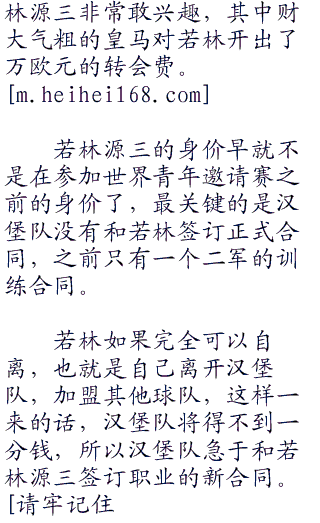 林源三非常敢兴趣，其中财
大气粗的皇马对若林开出了
万欧元的转会费。
[m.heihei168.com]
若林源三的身价早就不
是在参加世界青年邀请赛之
前的身价了，最关键的是汉
堡队没有和若林签订正式合
同，之前只有一个二军的训
练合同。
若林如果完全可以自
离，也就是自己离开汉堡
队，加盟其他球队，这样一
来的话，汉堡队将得不到一
分钱，所以汉堡队急于和若
林源三签订职业的新合同。
[请牢记住